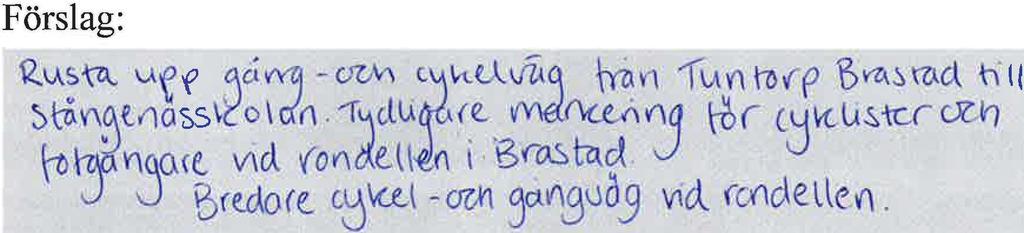 Förslag:
Rusta upp gång-och cykelväg från Tuntorp Brastad till
Stångenässkolan. Tydligare markering för cyklister och
fotgängare vid rondellen i Brastad.
Bredare cykel-och gångväg vid rondellen.